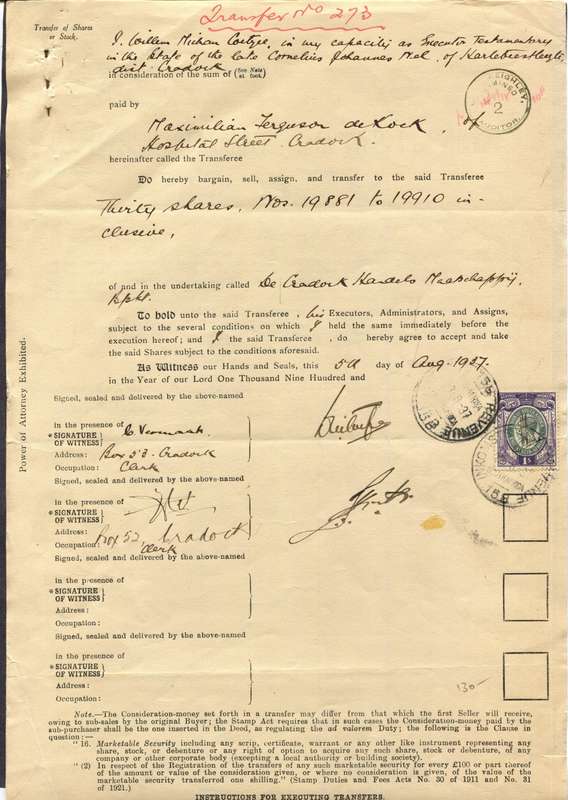 Transfer No 273
Transfer of Shares
or Stock.
I, Willem Coetzee, in my capacity as Executor Testamentary
in the Estate of the late Cornelius Johannes Nel, of
dist. Cradock
in consideration of the sum of (See Note at foot.)
2
AUDITOR
paid by
Maximilian Ferguson de Kock, of
Hospital Street, Cradock.
hereinafter called the Transferee
Do hereby bargain, sell, assign, and transfer to the said Transferee
Thirty shares, Nos. 19881 to 19910 in-
clusive,
of and in the undertaking called De Cradock Handels Maatschappij,
Bpkt.
To hold unto the said Transferee, his Executors, Administrators, and Assigns,
subject to the several conditions on which I held the same immediately before the
execution hereof; and I the said Transferee, do hereby agree to accept and take
the said Shares subject to the conditions aforesaid.
As Witness our Hands and Seals, this 5th day of Aug. 1937.
in the Year of our Lord One Thousand Nine Hundred and
Power of Attorney Exhibited.
Signed, sealed and delivered by the above-named
in the presence of
* SIGNATURE
OF WITNESS
Address: Box 53 Cradock
Occupation: Clerk
REVENUE
1s
Signed, sealed and delivered by the above-named
in the presence of
* SIGNATURE
OF WITNESS
Address: Box 52, Cradock
Occupation: Clerk
Signed, sealed and delivered by the above-named
in the presence of
* SIGNATURE
OF WITNESS
Address:
Occupation:
Signed, sealed and delivered by the above-named
in the presence of
* SIGNATURE
OF WITNESS
Address:
Occupation:
130-
Note.—The Consideration-money set forth in a transfer may differ from that which the first Seller will receive,
owing to sub-sales by the original Buyer; the Stamp Act requires that in such cases the Consideration-money paid by the
sub-purchaser shall be the one inserted in the Deed, as regulating the ad valorem Duty; the following is the Clause in
question:—
"16. Marketable Security including any scrip, certificate, warrant or any other like instrument representing any
share, stock, or debenture or any right of option to acquire any such share, stock or debenture, of any
company or other corporate body (excepting a local authority or building society).
"(2) In respect of the Registration of the transfers of any such marketable security for every £100 or part thereof
of the amount or value of the consideration given, or where no consideration is given, of the value of the
marketable security transferred one shilling." (Stamp Duties and Fees Acts No. 30 of 1911 and No. 31
of 1921.)
INSTRUCTIONS FOR EXECUTING TRANSFERS.